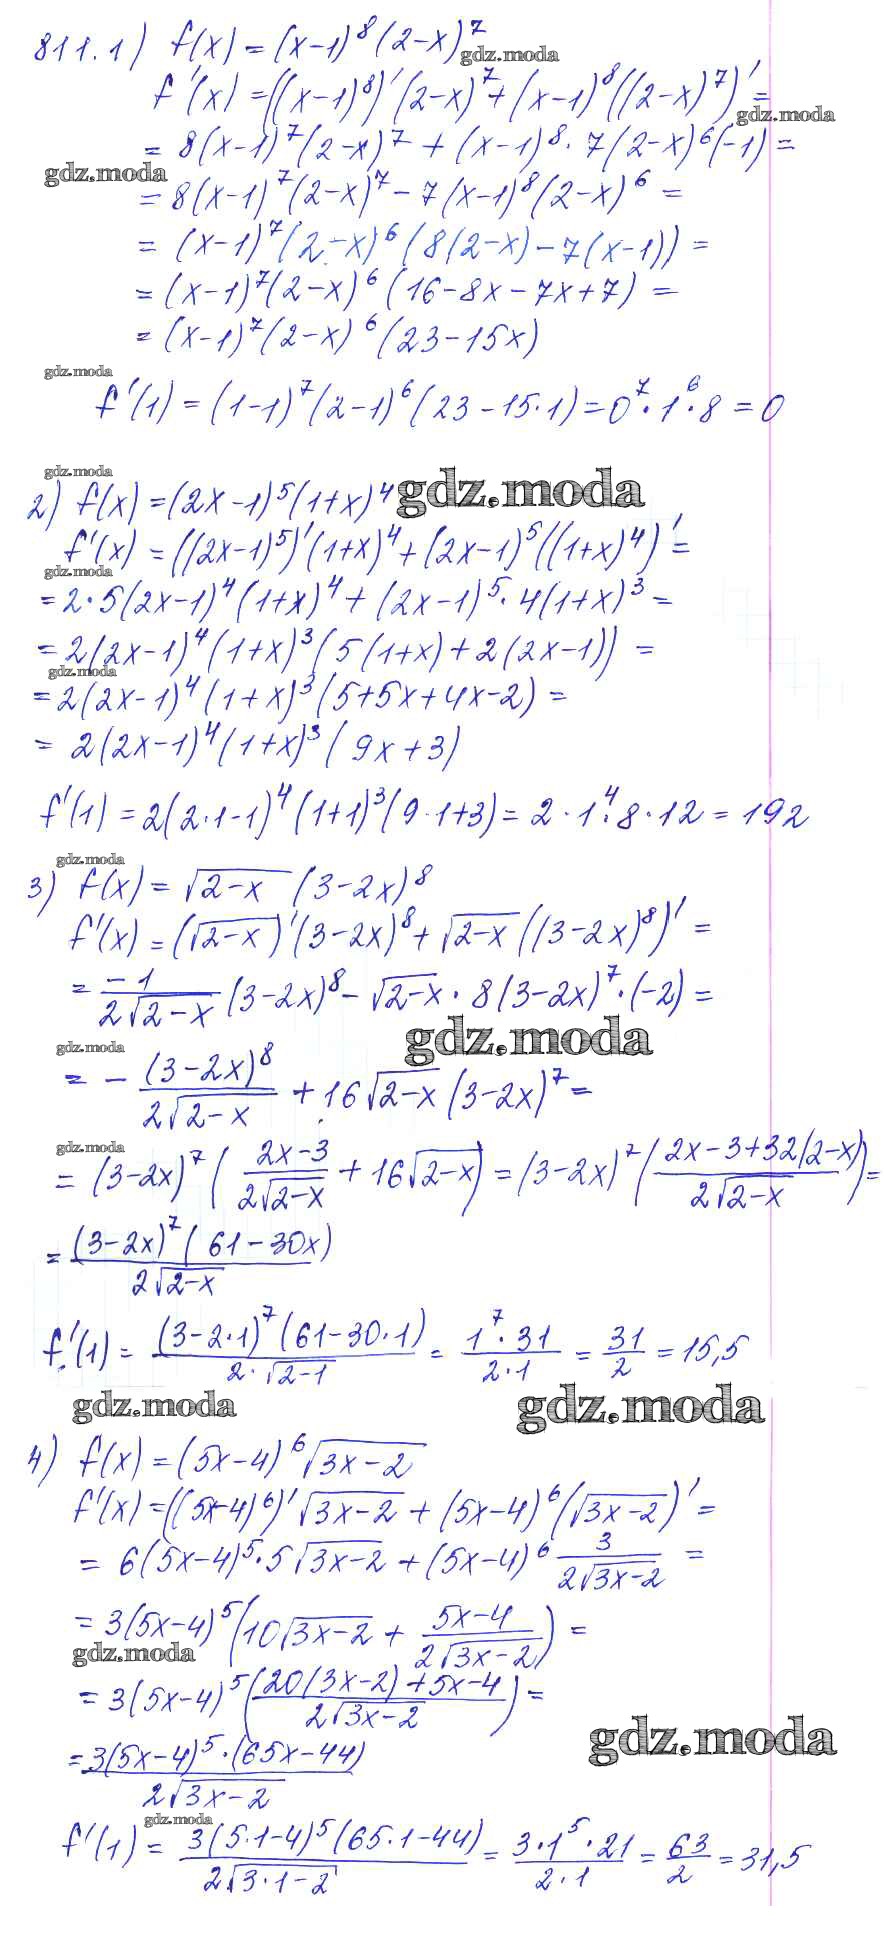 811.1) f(x) = (x-1)⁸(2-x)⁷
gdz.moda
f'(x) = ((x-1)⁸)'(2-x)⁷+(x-1)⁸((2-x)⁷)'=
gdz.moda
= 8(x-1)⁷(2-x)⁷ + (x-1)⁸·7(2-x)⁶(-1) =
gdz.moda
= 8(x-1)⁷(2-x)⁷ - 7(x-1)⁸(2-x)⁶ =
= (x-1)⁷(2-x)⁶(8(2-x)-7(x-1)) =
= (x-1)⁷(2-x)⁶(16-8x-7x+7) =
= (x-1)⁷(2-x)⁶(23-15x)
gdz.moda
f'(1) = (1-1)⁷(2-1)⁶(23-15·1)=0⁷·1⁶·8 = 0
gdz.moda
2) f(x) = (2x-1)⁵(1+x)⁴
gdz.moda
f'(x) = ((2x-1)⁵)'(1+x)⁴+(2x-1)⁵((1+x)⁴)'=
gdz.moda
= 2·5(2x-1)⁴(1+x)⁴ + (2x-1)⁵·4(1+x)³ =
= 2(2x-1)⁴(1+x)³(5(1+x)+2(2x-1)) =
gdz.moda
= 2(2x-1)⁴(1+x)³(5+5x+4x-2) =
= 2(2x-1)⁴(1+x)³(9x+3)
f'(1) = 2(2·1-1)⁴(1+1)³(9·1+3) = 2·1⁴·8·12 = 192
gdz.moda
3) f(x) = √(2-x) (3-2x)⁸
f'(x) = (√(2-x))'(3-2x)⁸+√(2-x)((3-2x)⁸)' =
= -1/(2√(2-x)) (3-2x)⁸ - √(2-x)·8(3-2x)⁷·(-2) =
gdz.moda
gdz.moda
= - (3-2x)⁸/(2√(2-x)) + 16√(2-x)(3-2x)⁷ =
gdz.moda
= (3-2x)⁷((2x-3)/(2√(2-x)) + 16√(2-x)) = (3-2x)⁷((2x-3+32(2-x))/(2√(2-x))) =
= (3-2x)⁷(61-30x)/(2√(2-x))
f'(1) = (3-2·1)⁷(61-30·1)/(2·√(2-1)) = 1⁷·31/(2·1) = 31/2 = 15,5
gdz.moda
gdz.moda
4) f(x) = (5x-4)⁶√(3x-2)
f'(x) = ((5x-4)⁶)'√(3x-2) + (5x-4)⁶(√(3x-2))' =
= 6(5x-4)⁵·5√(3x-2) + (5x-4)⁶ 3/(2√(3x-2)) =
= 3(5x-4)⁵(10√(3x-2) + (5x-4)/(2√(3x-2))) =
gdz.moda
= 3(5x-4)⁵((20(3x-2)+5x-4)/(2√(3x-2))) =
gdz.moda
= 3(5x-4)⁵·(65x-44)/(2√(3x-2))
gdz.moda
f'(1) = 3(5·1-4)⁵(65·1-44)/(2√(3·1-2)) = 3·1⁵·21/(2·1) = 63/2 = 31,5